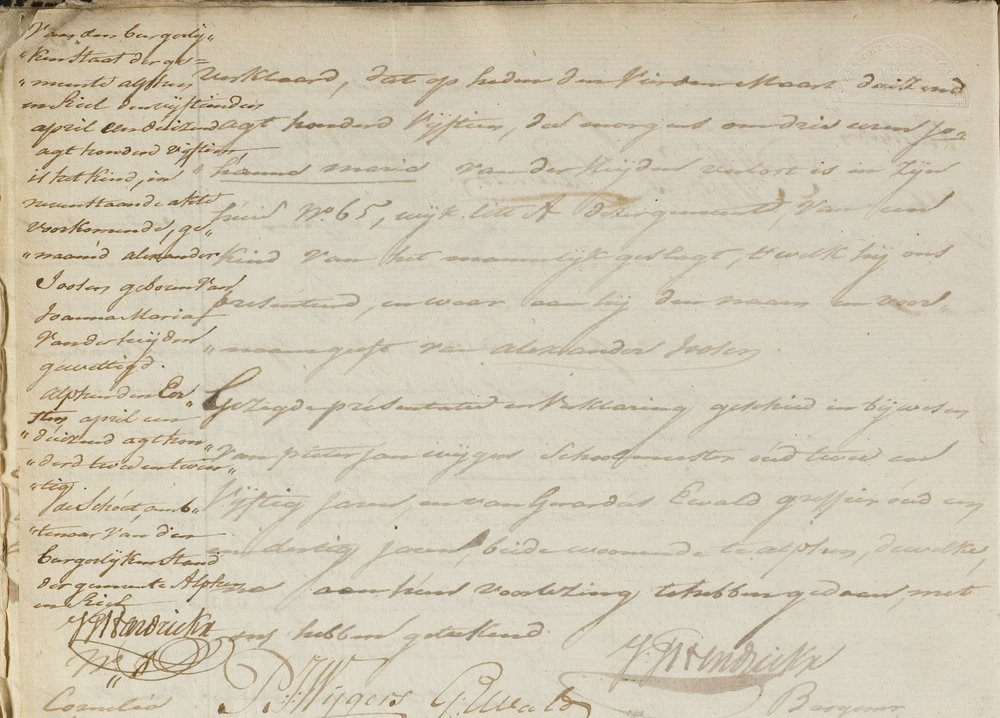 Van den burgerlij„
„ken Staat der ge„
„meente alphen
en Riel den vijftienden
april een duizend
agt honderd vijftien
is het kind, in
nevenstaande akte
voorkomende, ge„
„naamd alexander
Joosen geboren van
Joanna Maria
Van der heijden
gewettigd.
Alphen den Eer„
„sten april een
„duizend agt hon„
„derd twee en twin„
„tig
de Schout amb„
„tenaar van den
burgerlijken Stand
der gemeente Alphen
en Riel
Verklaard, dat op heden den Vierden Maart duizend
agt honderd Vijftien, des morgens om drie uren Jo„
„hanna maria van der Heijden verlost is in Zijn
huis No 65, wijk litt A dezer gemeente van een
kind van het mannelijk geslagt, 't welk hij ons
presenteerd, en waar aan hij den naam en voor„
„naam geeft van alexander Joosen.
Gezegde presentatie en Verklaring geschied in bijwesen
van pieter jan wijgers Schoolmeester oud twee en
Vijftig jaren, en van Gerardus Ewald greffier oud een
en dertig jaren, beide woonende te alphen, dewelke,
na aan hun voorlezing te hebben gedaan, met
ons hebben geteekend.
P: J: Wijgers G Ewald
Cornelia